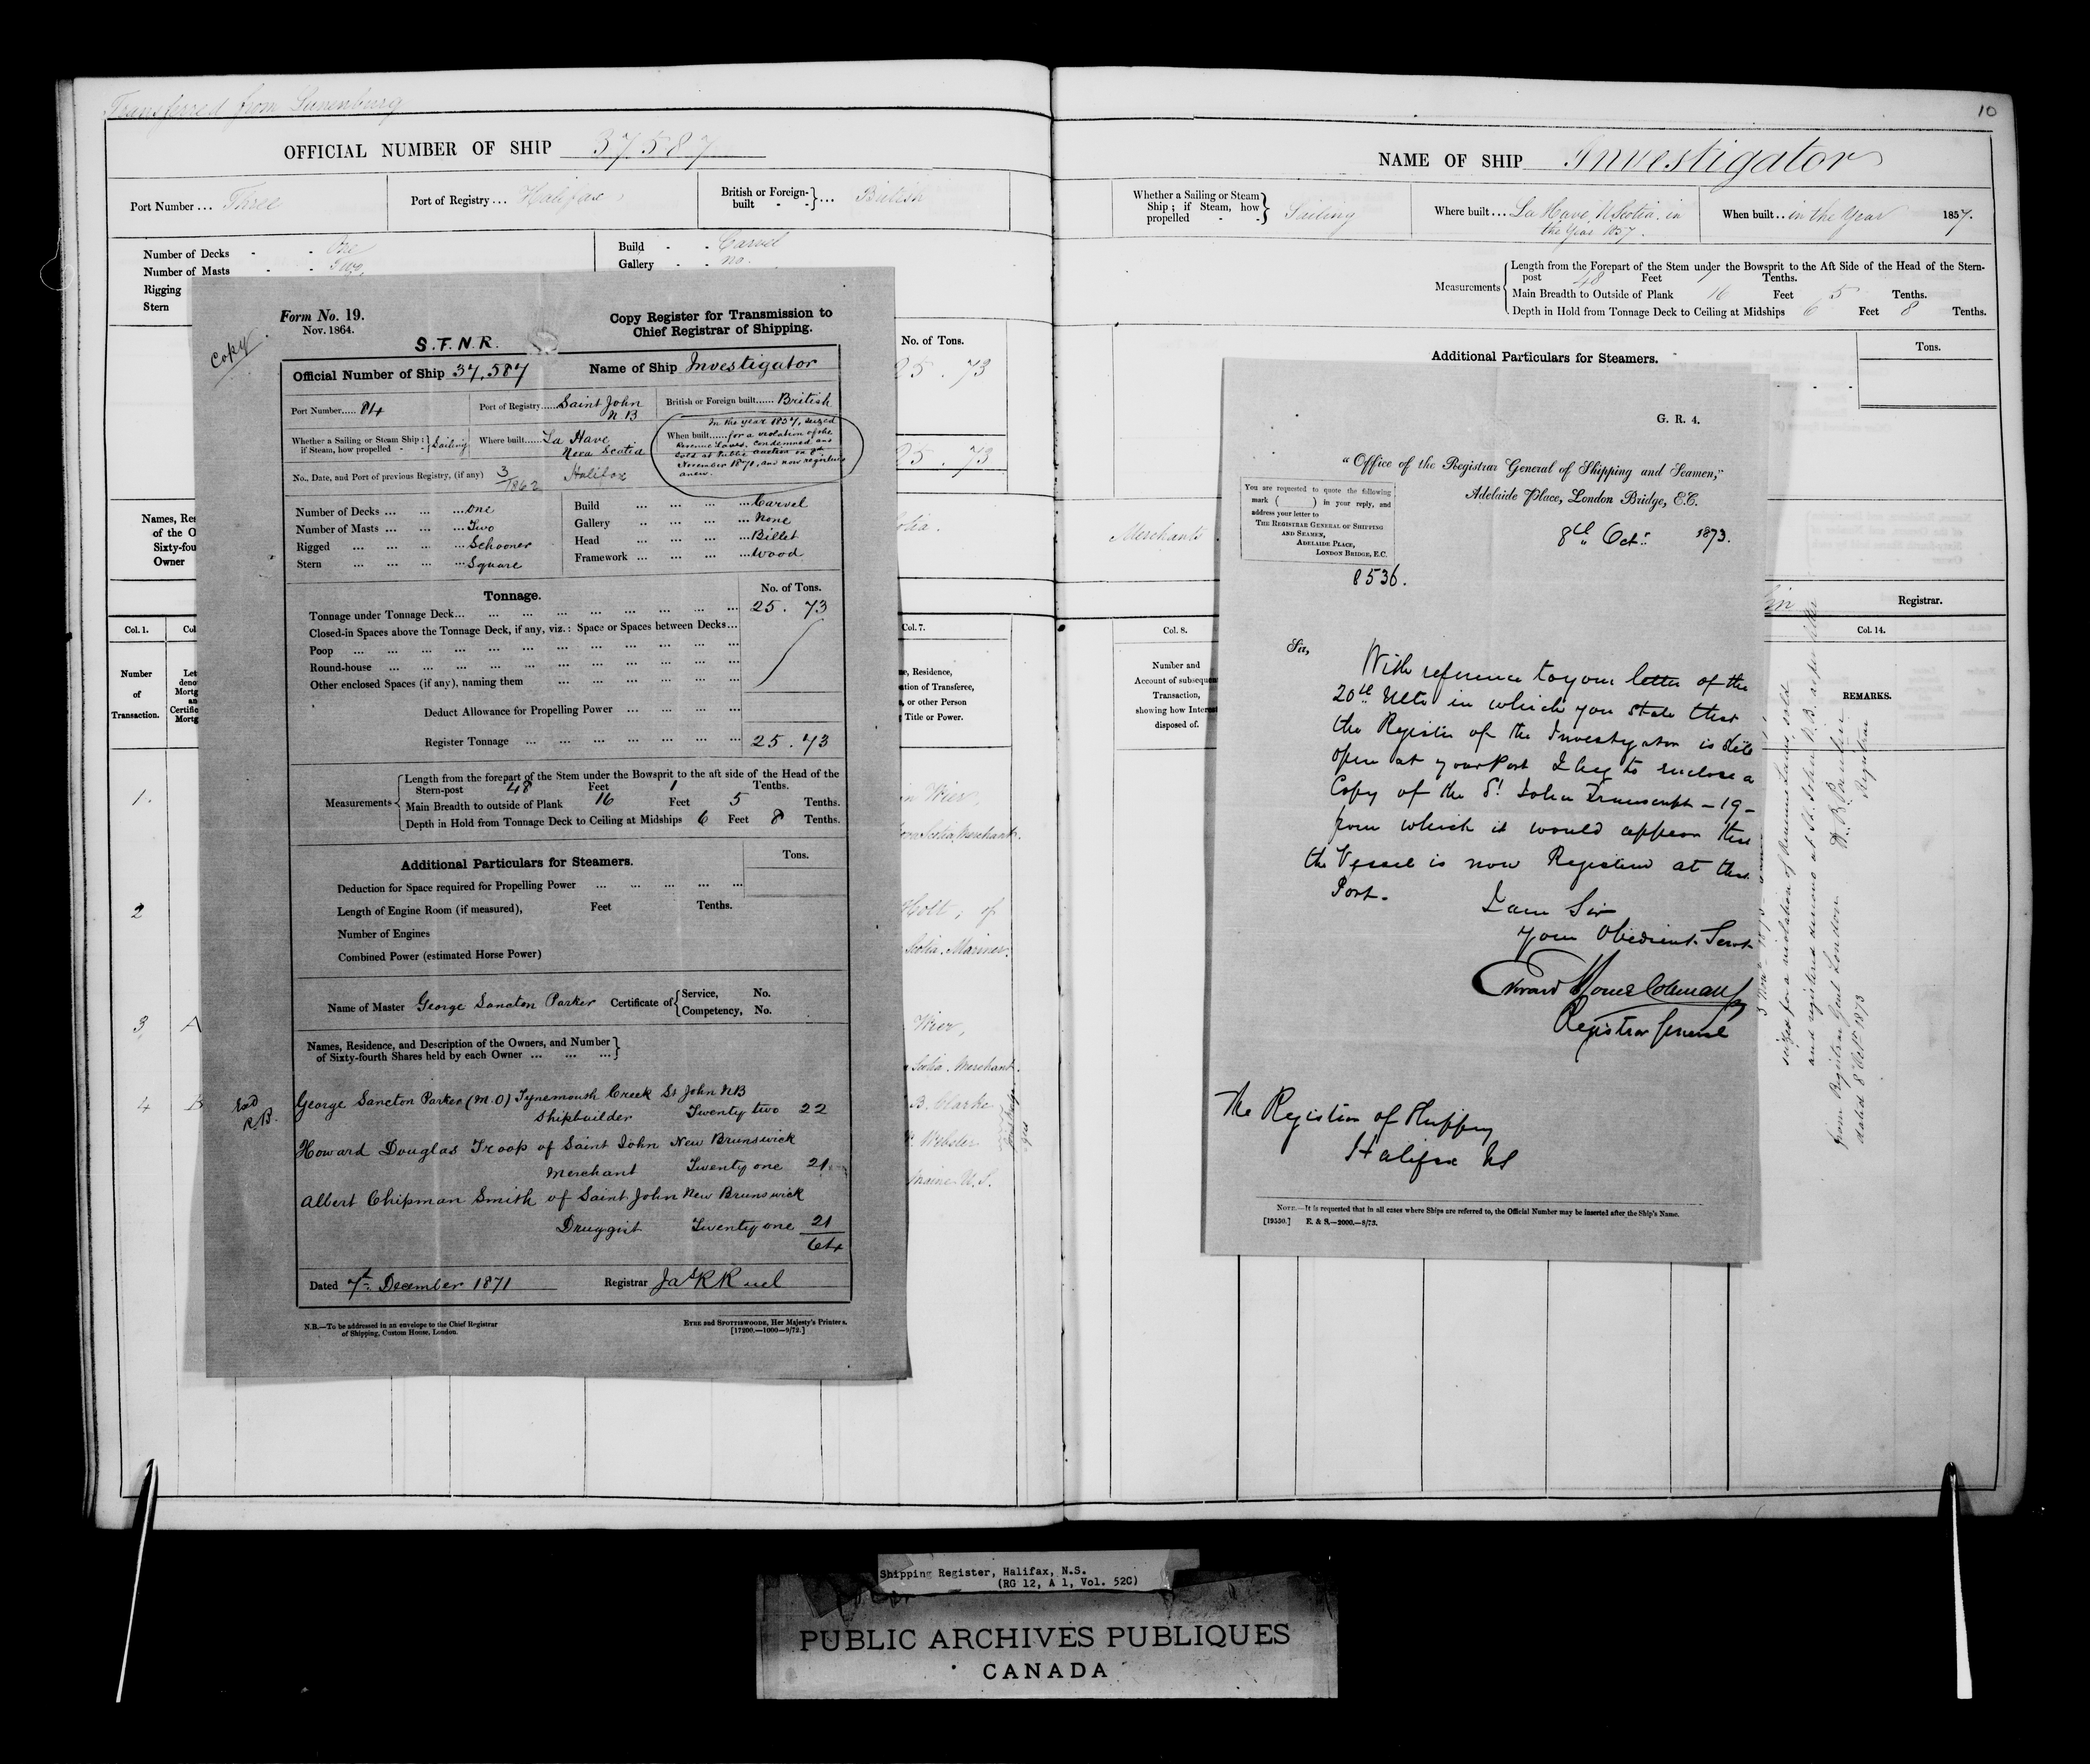 Transferred from Lunenburg
OFFICIAL NUMBER OF SHIP 37587
Port Number... Three
Port of Registry... Halifax
British or Foreign-built - - }... British
Number of Decks - - One
Number of Masts - - Two
Rigging
Stern
Build - - Carvel
Gallery - - no.
No. of Tons.
25.73
25.73
Names, Res
of the O
Sixty-fou
Owner
otia.
Col. 1.
Col
Col. 7.
Number
of
Transaction.
Let
deno
Mortg
an
Certific
Mortg
ne, Residence,
ation of Transferee,
, or other Person
Title or Power.
1.
2
3 A
4 B
in Wier,
Scotia Merchant.
Holt, of
Scotia, Mariner.
Wier,
Scotia. Merchant.
B. Clarke
Webster
Maine U.S.
Copy
Form No. 19.
Nov. 1864.
S.F.N.R.
Copy Register for Transmission to
Chief Registrar of Shipping.
Official Number of Ship 37,587
Name of Ship Investigator
Port Number..... 84
Port of Registry..... Saint John
N B
British or Foreign built...... British
Whether a Sailing or Steam Ship :
if Steam, how propelled - - } Sailing
Where built..... La Have
Nova Scotia
In the year 1857, seized
When built...... for a violation of the
Revenue Laws, Condemned and
Sold at Public auction on 8th
November 1871, and now registered
anew.
No., Date, and Port of previous Registry, (if any) 3/1862 Halifax
Number of Decks ... One
Number of Masts ... Two
Rigged ... Schooner
Stern ... Square
Build ... Carvel
Gallery ... None
Head ... Billet
Framework ... Wood
Tonnage.
No. of Tons.
Tonnage under Tonnage Deck... 25. 73
Closed-in Spaces above the Tonnage Deck, if any, viz.: Space or Spaces between Decks...
Poop ...
Round-house ...
Other enclosed Spaces (if any), naming them ...
Deduct Allowance for Propelling Power ...
Register Tonnage ... 25. 73
Measurements
Length from the forepart of the Stem under the Bowsprit to the aft side of the Head of the
Stern-post 48 Feet 1 Tenths.
Main Breadth to outside of Plank 16 Feet 5 Tenths.
Depth in Hold from Tonnage Deck to Ceiling at Midships 6 Feet 8 Tenths.
Additional Particulars for Steamers.
Tons.
Deduction for Space required for Propelling Power ...
Length of Engine Room (if measured), Feet Tenths.
Number of Engines
Combined Power (estimated Horse Power)
Name of Master George Sancton Parker
Certificate of { Service, No.
Competency, No.
Names, Residence, and Description of the Owners, and Number
of Sixty-fourth Shares held by each Owner ... ... ...}
George Sancton Parker (M.O) Tynemouth Creek St John NB
Shipbuilder Twenty two 22
Howard Douglas Troop of Saint John New Brunswick
Merchant Twenty one 21
Albert Chipman Smith of Saint John New Brunswick
Druggist Twenty one 21
64
R.B.
Dated 7th December 1871
Registrar Jas R Ruel
N.B.—To be addressed in an envelope to the Chief Registrar
of Shipping, Custom House, London.
EYRE and SPOTTISWOODE, Her Majesty's Printers.
[17200.—1000—9/72.]
10
NAME OF SHIP Investigator
Whether a Sailing or Steam
Ship; if Steam, how
propelled - - } Sailing
Where built... La Have, N Scotia. in
the Year 1857.
When built.. in the Year 1857.
Measurements
Length from the Forepart of the Stem under the Bowsprit to the Aft Side of the Head of the Stern-
post 48 Feet 1 Tenths.
Main Breadth to Outside of Plank 16 Feet 5 Tenths.
Depth in Hold from Tonnage Deck to Ceiling at Midships 6 Feet 8 Tenths.
Additional Particulars for Steamers.
Tons.
Merchants
Registrar.
Col. 8.
Col. 14.
Number and
Account of subsequent
Transaction,
showing how Interest
disposed of.
REMARKS.
seized for a violation of Revenue Laws, sold
and registered anew at St. John N.B. as per letter
from Registrar Genl London
dated 8 Octr 1873
Registrar
G. R. 4.
"Office of the Registrar General of Shipping and Seamen,"
Adelaide Place, London Bridge, E.C.
8th Octr 1873.
You are requested to quote the following
mark ( ) in your reply, and
address your letter to
THE REGISTRAR GENERAL OF SHIPPING
AND SEAMEN,
ADELAIDE PLACE,
LONDON BRIDGE, E.C.
8536.
Sir,
With reference to your letter of the
20th Ulto in which you state that
the Register of the Investigator is still
open at your Port I beg to enclose a
Copy of the St John Transcript - 19 -
from which it would appear that
the Vessel is now Registered at that
Port.
I am Sir
Your Obedient Servt
Registrar General
The Registrar of Shipping
Halifax NS
NOTE.—It is requested that in all cases where Ships are referred to, the Official Number may be inserted after the Ship's Name.
[19550.] E. & S.—2000.—8/73.
Shipping Register, Halifax, N.S.
(RG 12, A 1, Vol. 52C)
PUBLIC ARCHIVES PUBLIQUES
CANADA